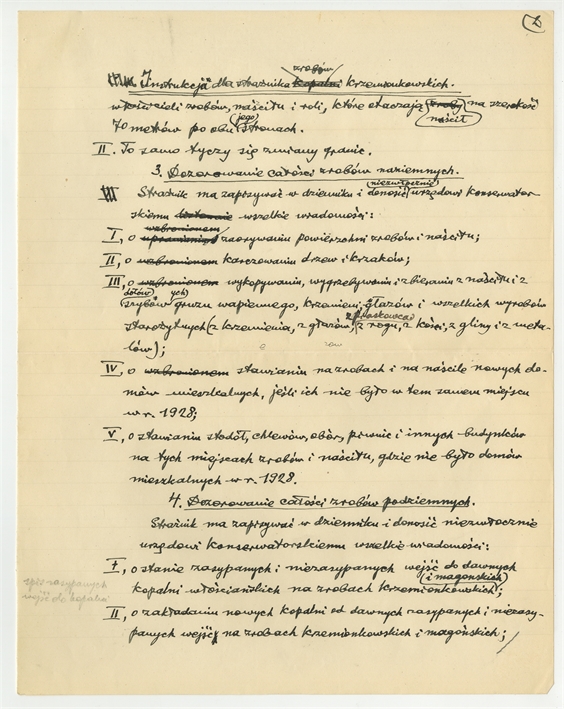 2
Instrukcja dla strażnika kopalni zrobów krzemionkowskich.
właścicieli zrobów, naściłu i roli, które otaczają zroby naścił na szerokość
70 metrów po obu jego stronach.
II. To samo tyczy się zmiany granic.
3. Dozorowanie całości zrobów naziemnych.
III Strażnik ma zapisywać w dzienniku i donosić niezwłocznie urzędowi konserwator-
skiemu wszelkie wiadomości:
I, o wzbronionem zaorywaniu powierzchni zrobów i naściłu;
II, o wzbronionem karczowaniu drzew i krzaków;
III, o wzbronionem wykopywaniu, wygrzebywaniu i zbieraniu z naściłu i z
szybów dołów gruzu wapiennego, krzemieni, głazów i wszelkich wyrobów
starożytnych (z krzemienia, z głazów, z piaskowca z rogu, z kości, z gliny i z meta-
lów);
IV, o wzbronionem stawianiu na zrobach i na naściłe nowych do-
mów mieszkalnych, jeśli ich nie było w tem samem miejscu
w r. 1928;
V, o stawianiu stodół, chlewów, obór, piwnic i innych budynków
na tych miejscach zrobów i naściłu, gdzie nie było domów
mieszkalnych w r. 1928.
4. Dozorowanie całości zrobów podziemnych.
Strażnik ma zapisywać w dzienniku i donosić niezwłocznie
urzędowi konserwatorskiemu wszelkie wiadomości:
I, o stanie zasypanych i niezasypanych wejść do dawnych
kopalni włościańskich na zrobach krzemionkowskich i magońskich;
spis zasypanych
wejść do kopalni
II, o zakładaniu nowych kopalni od dawnych zasypanych i niezasy-
panych wejść na zrobach krzemionkowskich i magońskich;